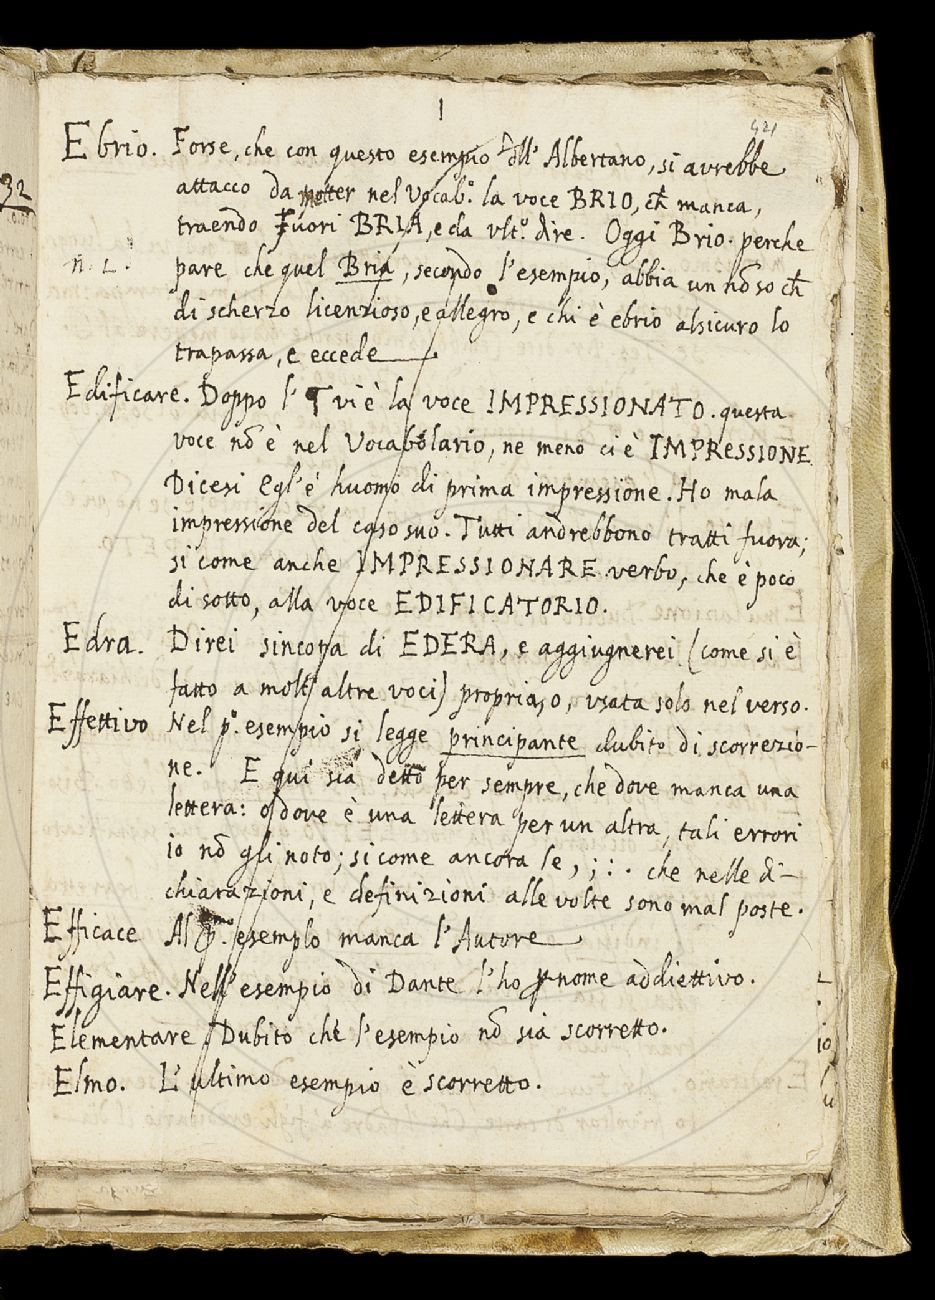 1
421
Ebrio. Forse, che con questo esempio dell' Albertano, si avrebbe
32
attacco da metter nel Vocab.º la voce BRIO, ch̄ manca,
traendo fuori BRIA, e da vlt.º dire. Oggi Brio. perche
n. L. pare che quel Bria, secondo l'esempio, abbia un nō so ch̄
di scherzo licenzioso, e allegro, e chi è ebrio alsicuro lo
trapassa, e eccede
Edificare. Doppo l' vi è la voce IMPRESSIONATO. questa
voce nō è nel Vocabolario, ne meno ci è IMPRESSIONE
Dicesi Egl'è huomo di prima impressione. Ho mala
impressione del caso suo. Tutti andrebbono tratti fuora;
si come anche IMPRESSIONARE verbo, che è poco
di sotto, alla voce EDIFICATORIO.
Edra. Direi sincopa di EDERA, e aggiugnerei (come si è
fatto a molt'altre voci) proprias, o, usata solo nel verso.
Effettivo Nel p.º esempio si legge principante dubito di scorrezio-
ne. E qui sia detto per sempre, che dove manca una
lettera: o dove è una lettera per un altra, tali errori
io nō gli noto; si come ancora le , ; : . che nelle di-
chiarazioni, e definizioni alle volte sono mal poste.
Efficace Al p.mo esemplo manca l'Autore
Effigiare. Nell'esempio di Dante l'ho p nome addiettivo.
Elementare Dubito che l'esempio nō sia scorretto.
Elmo. L'ultimo esempio è scorretto.